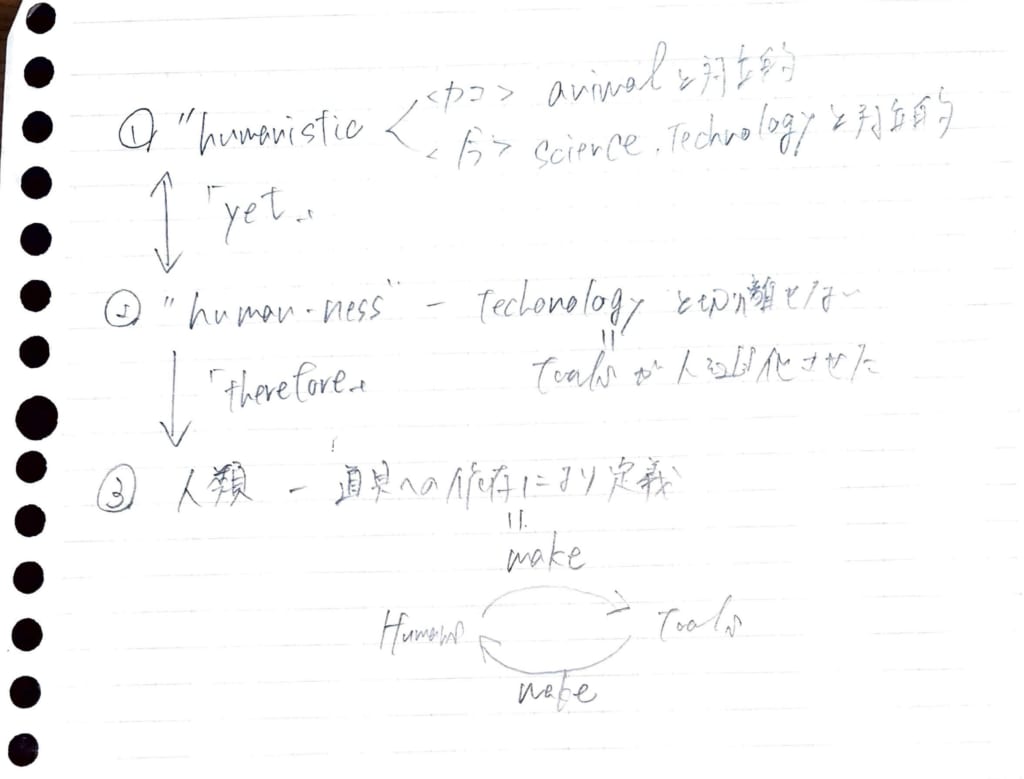 ① "humanistic
<カコ> animalと対立的
<今> science, Technologyと対立的
「yet」
② "human-ness" - Techonologyと切り離せない
||
Toolsが人を進化させた
「therefore」
③ 人類 - 道具への依存により定義
||
make
Humans Tools
make